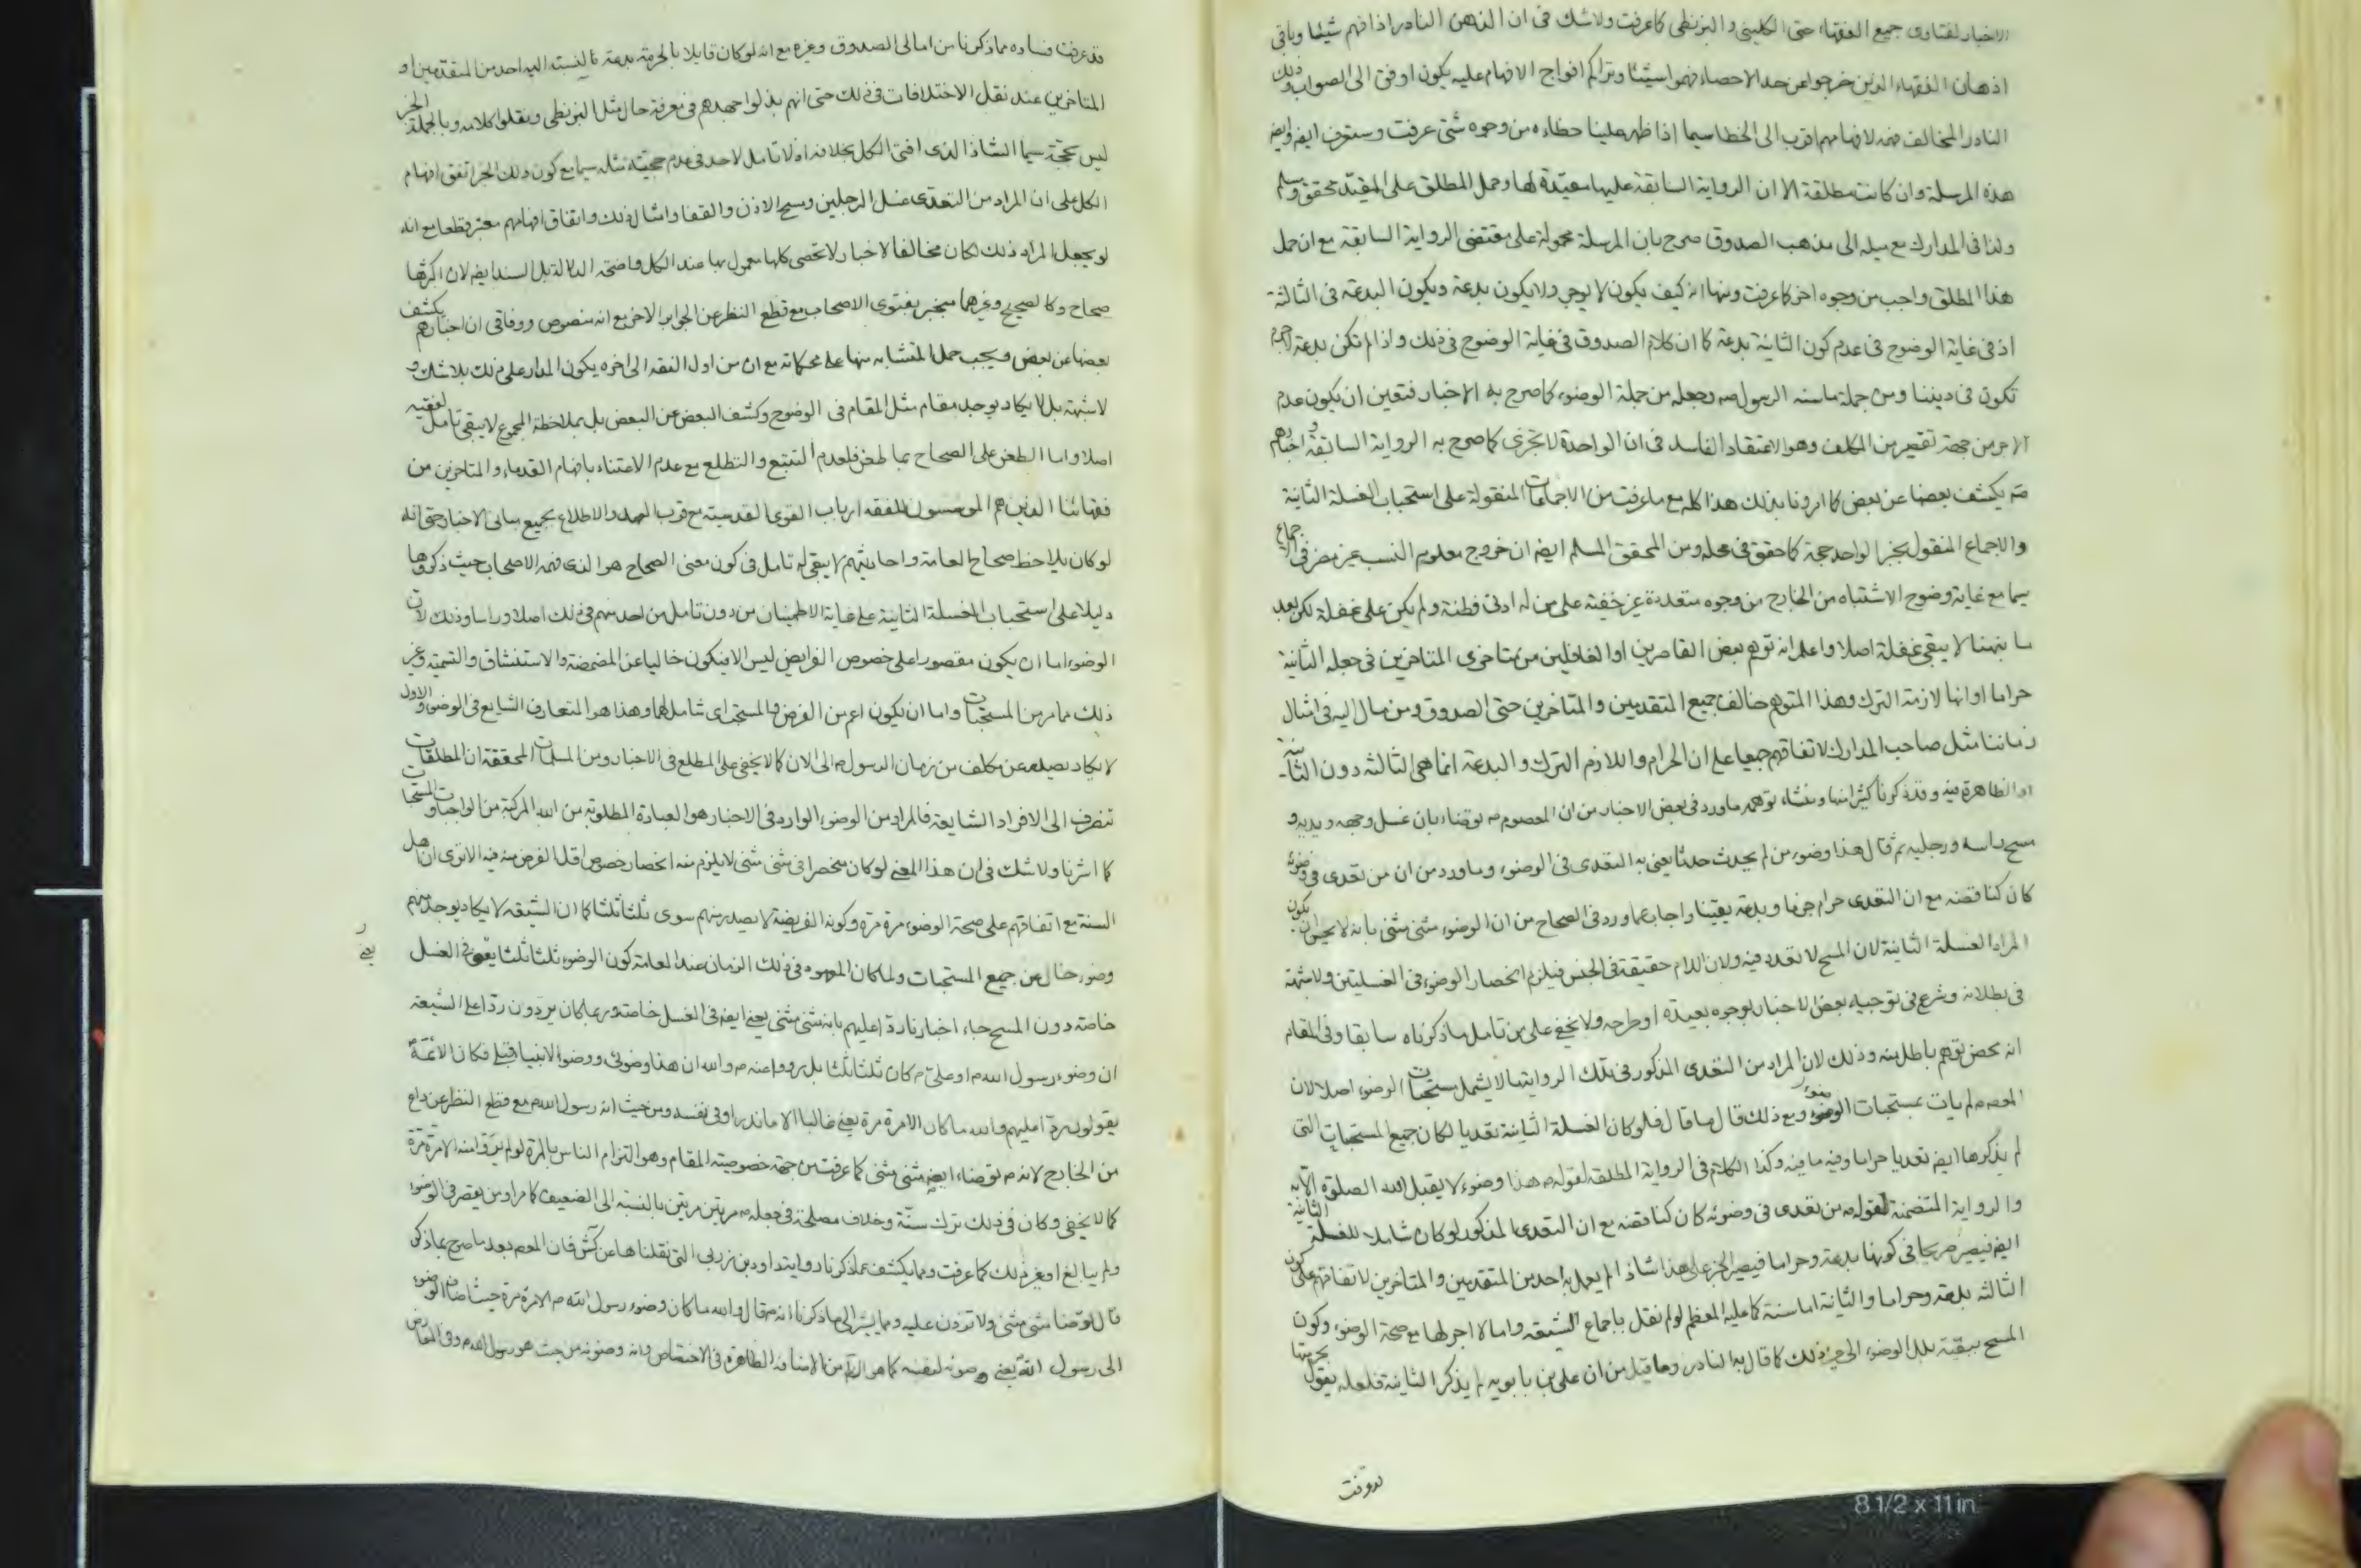 الاخبار لفتاوى جميع الفقهاء حتى الكليني و البزنطى كما عرفت ولا شك فى ان الذهن النادر اذا فهم شيئا وباقى
اذهان الفقهاء الذين خرجوا عن حد الاحصاء فهموا شيئا وتراكم افواج الافهام عليه يكون اوفق الى الصواب وذلك
النادر المخالف فهمه لافهامهم اقرب الى الخطا سيما اذا ظهر علينا خطاءه من وجوه شتى عرفت وستعرف ايضا وايضا
هذه المرسلة وان كانت مطلقة الا ان الرواية السابقة عليها مقيدة لها وحمل المطلق على المقيد محقق ومسلم
ولذا فى المدارك مع ميله الى مذهب الصدوق صرح بان المرسلة محمولة على مقتضى الرواية السابقة مع ان حمل
هذا المطلق واجب من وجوه اخر كما عرفت ومنها انه كيف يكون لا يوجر ولا يكون بدعة ويكون البدعة فى الثالثة
اذ فى غاية الوضوح فى عدم كون الثانية بدعة كما ان كلام الصدوق فى غاية الوضوح فى ذلك واذا لم تكن بدعة
تكون فى ديننا ومن جملة ما سنه الرسول ص وجعله من جملة الوضوء كما صرح به الاخبار فتعين ان يكون عدم
الاجر من جهة تقصير من المكلف وهو الاعتقاد الفاسد فى ان الواحدة لا تجزى كما صرح به الرواية السابقة و اخبارهم
يكشف بعضها عن بعض كما امرونا بذلك هذا كله مع ما عرفت من الاجماعات المنقولة على استحباب الغسلة الثانية
والاجماع المنقول بخبر الواحد حجة كما حقق فى محله ومن المحقق المسلم ايضا ان خروج معلوم النسب غير مضر فى اجماع
سيما مع غاية وضوح الاشتباه من الخارج من وجوه متعددة غير خفية على من له ادنى فطنة ولم يكن على غفلة لكن بعد
ما نبهنا لا يبقى غفلة اصلا واعلم انه توهم بعض القاصرين او الغافلين من متاخرى المتاخرين فى جعله الثانية
حراما او انها لازمة الترك وهذا المتوهم خالف جميع المتقدمين والمتاخرين حتى الصدوق ومن مال اليه فى امثال
زماننا مثل صاحب المدارك لاتفاقهم جميعا على ان الحرام واللازم الترك و البدعة انما هى الثالثة دون الثانية
او الظاهرة فيه وقد ذكرنا كثيرا منها ومنشاء توهمه ما ورد فى بعض الاخبار من ان المعصوم ع توضاء بان غسل وجهه ويديه و
مسح راسه ورجليه ثم قال هذا وضوء من لم يحدث حدثا يعنى به التعدى فى الوضوء وما ورد من ان من تعدى فى وضوئه
كان كناقضه مع ان التعدى حرام جزما وبدعة يقينا واجاب عما ورد فى الصحاح من ان الوضوء مثنى مثنى بانه لا يجوز ان يكون
المراد الغسلة الثانية لان المسح لا تعدد فيه ولان اللام حقيقة فى الجنس فيلزم انحصار الوضوء فى الغسلتين ولا شبهة
فى بطلانه وشرع فى توجيه بعض الاخبار بوجوه بعيدة او طرحه ولا يخفى على من تامل ما ذكرناه سابقا وفى المقام
انه محض توهم باطل منه وذلك لان المراد من التعدى المذكور فى تلك الرواية ما لا يشمل مستحبات الوضوء اصلا لان
المعصوم لم يات بمستحبات الوضوء ومع ذلك قال ما قال فلو كان الغسلة الثانية تعديا لكان جميع المستحبات التى
لم يذكرها ايضا تعديا حراما وفيه ما فيه وكذا الكلام فى الرواية المطلقة لقوله ص هذا وضوء لا يقبل الله الصلوة الا به
والرواية المتضمنة لقوله من تعدى فى وضوئه كان كناقضه مع ان التعدى المذكور لو كان شاملا للغسلة الثانية
ايضا فيصير صريحا فى كونها بدعة وحراما فيصير الخبر على هذا شاذا لم يعمل به احد من المتقدمين والمتاخرين لاتفاقهم على كون
الثالثة بدعة وحراما والثانية اما سنة كما عليه المعظم لو لم نقل باجماع الشيعة واما لا اجر لها مع صحة الوضوء وكون
المسح ببقية بلل الوضوء الى غير ذلك كما قال به النادر وما قيل من ان على بن بابويه لم يذكر الثانية فلعله يقول بحرمتها
قد عرفت فساده مما ذكرنا من امالى الصدوق وغيره مع انه لو كان قايلا بالحرمة بدعة لنسبته اليه احد من المتقدمين او
المتاخرين عند نقل الاختلافات فى ذلك حتى انهم بذلوا جهدهم فى معرفة حال مثل البزنطى ونقلوا كلامه وبالجملة الخبر
ليس بحجة سيما الشاذ الذى افتى الكل بخلافه اذ لا تامل لاحد فى عدم حجية مثله سيما مع كون ذلك الخبر اتفق افهام
الكل على ان المراد من التعدى غسل الرجلين ومسح الاذن والقفا وامثال ذلك واتفاق افهامهم معتبر قطعا مع انه
لو يجعل المراد ذلك لكان مخالفا لاخبار لا تحصى كلها معمول بها عند الكل واضحة الدلالة بل السند ايضا لان اكثرها
صحاح وكالصحيح وغيرهما منجبر بفتوى الاصحاب مع قطع النظر عن الجوابر الاخر مع انه منصوص ووفاقى ان اخبارهم يكشف
بعضها عن بعض ويجب حمل المتشابه منها على محكماته مع ان من اول الفقه الى اخره يكون المدار على ذلك بلا شك و
لا شبهة بل لا يكاد يوجد مقام مثل المقام فى الوضوح وكشف البعض عن البعض بل بملاحظة المجموع لا يبقى تامل لفقيه
اصلا واما الطعن على الصحاح بما طعن فلعدم التتبع والتطلع مع عدم الاعتناء بافهام القدماء والمتاخرين من
فقهائنا الذين هم المؤسسون للفقه ارباب القوى القدسية مع قرب العهد والاطلاع بجميع مبانى الاخبار حتى انه
لو كان يلاحظ صحاح العامة واحاديثهم لا يبقى له تامل فى كون معنى الصحاح هو الذى فهمه الاصحاب حيث ذكروها
دليلا على استحباب الغسلة الثانية على غاية الاطمينان من دون تامل من احد منهم فى ذلك اصلا وراسا وذلك لان
الوضوء اما ان يكون مقصورا على خصوص الفرايض ليس الا فيكون خاليا عن المضمضة والاستنشاق والتسمية وغير
ذلك مما مر من المستحبات واما ان يكون اعم من الفرض والمستحب اى شاملا لهما وهذا هو المتعارف الشايع فى الوضوء والاول
لا يكاد يصدر عن مكلف من زمان الرسول ص الى الان كما لا يخفى على المطلع فى الاخبار ومن المسلمات المحققة ان المطلقات
تنصرف الى الافراد الشايعة فالمراد من الوضوء الوارد فى الاخبار هو العبادة المطلوبة من الله المركبة من الواجبات والمستحبات
كما اشرنا ولا شك فى ان هذا المعنى لو كان منحصرا فى مثنى مثنى لا يلزم منه انحصار خصوص اقل الفرض منه فيه الا ترى ان اهل
السنة مع اتفاقهم على صحة الوضوء مرة مرة وكونه الفريضة لا يصدر منهم سوى ثلثا ثلثا كما ان الشيعة لا يكاد يوجد منهم
وضوء خال عن جميع المستحبات ولما كان المعهود فى ذلك الزمان عند العامة كون الوضوء ثلثا ثلثا يعنى فى الغسل
خاصة دون المسح جاء اخبارنا ردا عليهم بانه مثنى مثنى يعنى ايضا فى الغسل خاصة وربما كان يردون ردا على الشيعة
ان وضوء رسول الله ص او على ع كان ثلثا ثلثا بل رووا عنه ص والله ان هذا وضوئى ووضوء الانبياء قبلى فكان الائمة
يقولون ردا عليهم والله ما كان الا مرة مرة يعنى غالبا الا ما ندر او فى نفسه ومن حيث انه رسول الله ص مع قطع النظر عن داع
من الخارج لانه ص توضاء ايضا مثنى مثنى كما عرفت من جهة خصوصية المقام وهو التزام الناس بالمرة لو لم يروا منه الا مرة مرة
كما لا يخفى وكان فى ذلك ترك سنة وخلاف مصلحة فى جعله ص مرتين مرتين بالنسبة الى الضعيف كما مر او من يقصر فى الوضوء
ولم يبالغ او غير ذلك كما عرفت ومما يكشف عما ذكرنا رواية داود بن زربى التى نقلناها عن كش فان المعصوم بعد ما صرح بما ذكر
قال توضا مثنى مثنى ولا تزدن عليه ومما يشير الى ما ذكرنا انه ع قال والله ما كان وضوء رسول الله ص الا مرة مرة حيث اضاف الوضوء
الى رسول الله يعنى وضوئه لنفسه كما هو اللازم من الاضافة الظاهرة فى الاختصاص وانه وضوئه من حيث هو رسول الله ص وفى التعارض